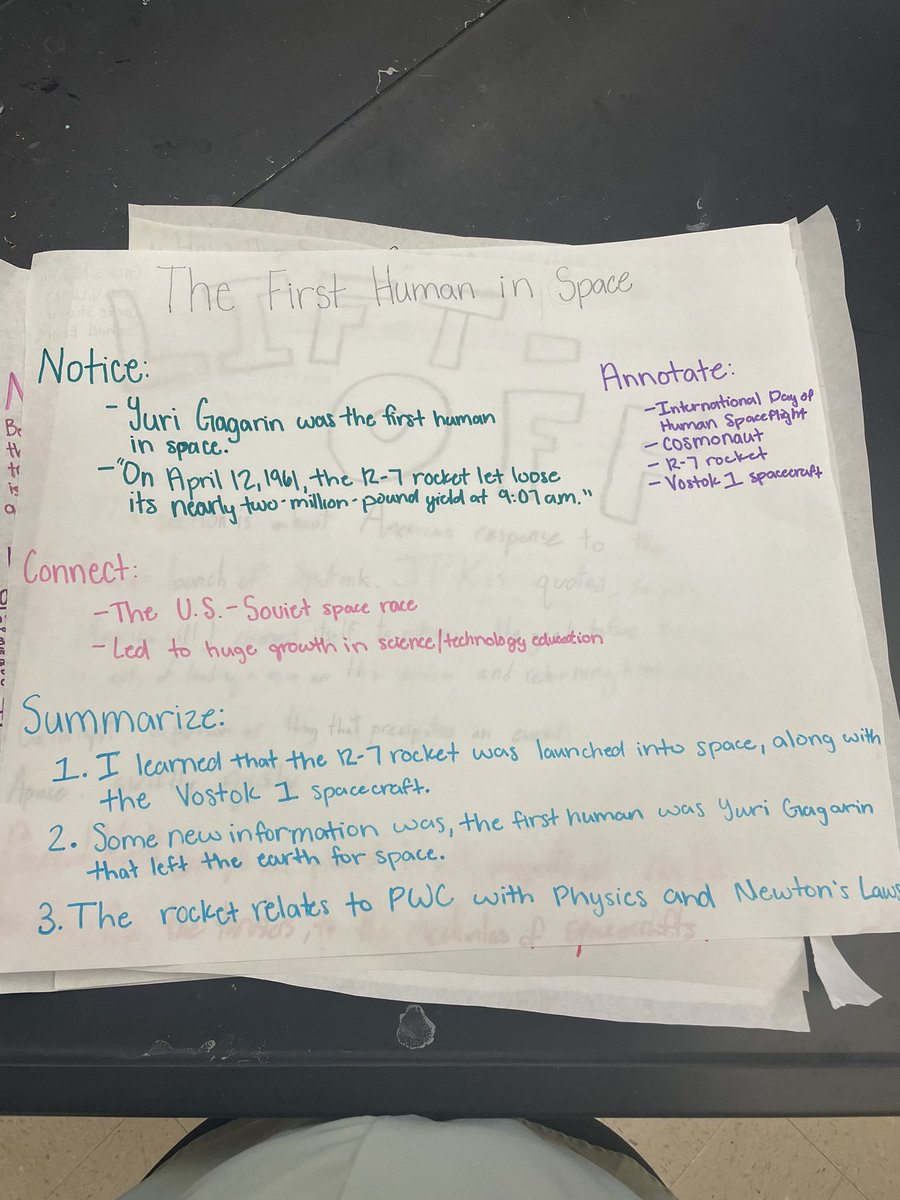 The First Human in Space
Notice:
- Yuri Gagarin was the first human
in space.
- "On April 12, 1961, the R-7 rocket let loose
its nearly two-million-pound yield at 9:07 a.m."
Annotate:
- International Day of
Human Spaceflight
- cosmonaut
- R-7 rocket
- Vostok 1 spacecraft
Connect:
- The U.S.-Soviet space race
- Led to huge growth in science/technology education
Summarize:
1. I learned that the R-7 rocket was launched into space, along with
the Vostok 1 spacecraft.
2. Some new information was, the first human was Yuri Gagarin
that left the earth for space.
3. The rocket relates to PWC with Physics and Newton's Laws
LIFT-
OFF